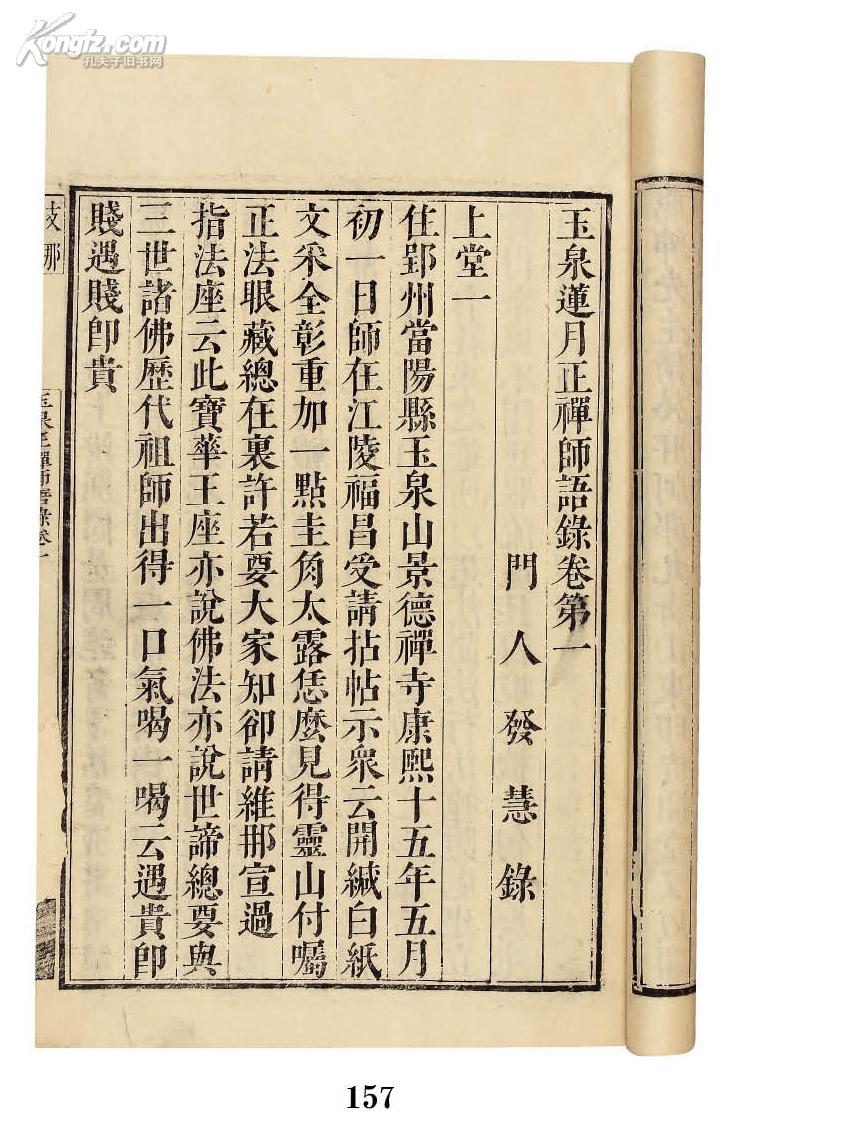 Kongfz.com
孔夫子旧书网
玉泉蓮月正禪師語錄卷第一
門人發慧錄
上堂一
住郢州當陽縣玉泉山景德禪寺康熙十五年五月
初一日師在江陵福昌受請拈帖示衆云開緘白紙
文采全彰重加一點圭角太露恁麽見得靈山付囑
正法眼藏總在裏許若要大家知卻請維那宣過
指法座云此寶華王座亦說佛法亦說世諦總要與
三世諸佛歷代祖師出得一口氣喝一喝云遇貴卽
賤遇賤卽貴
支那
玉泉正禪師語錄卷一
157